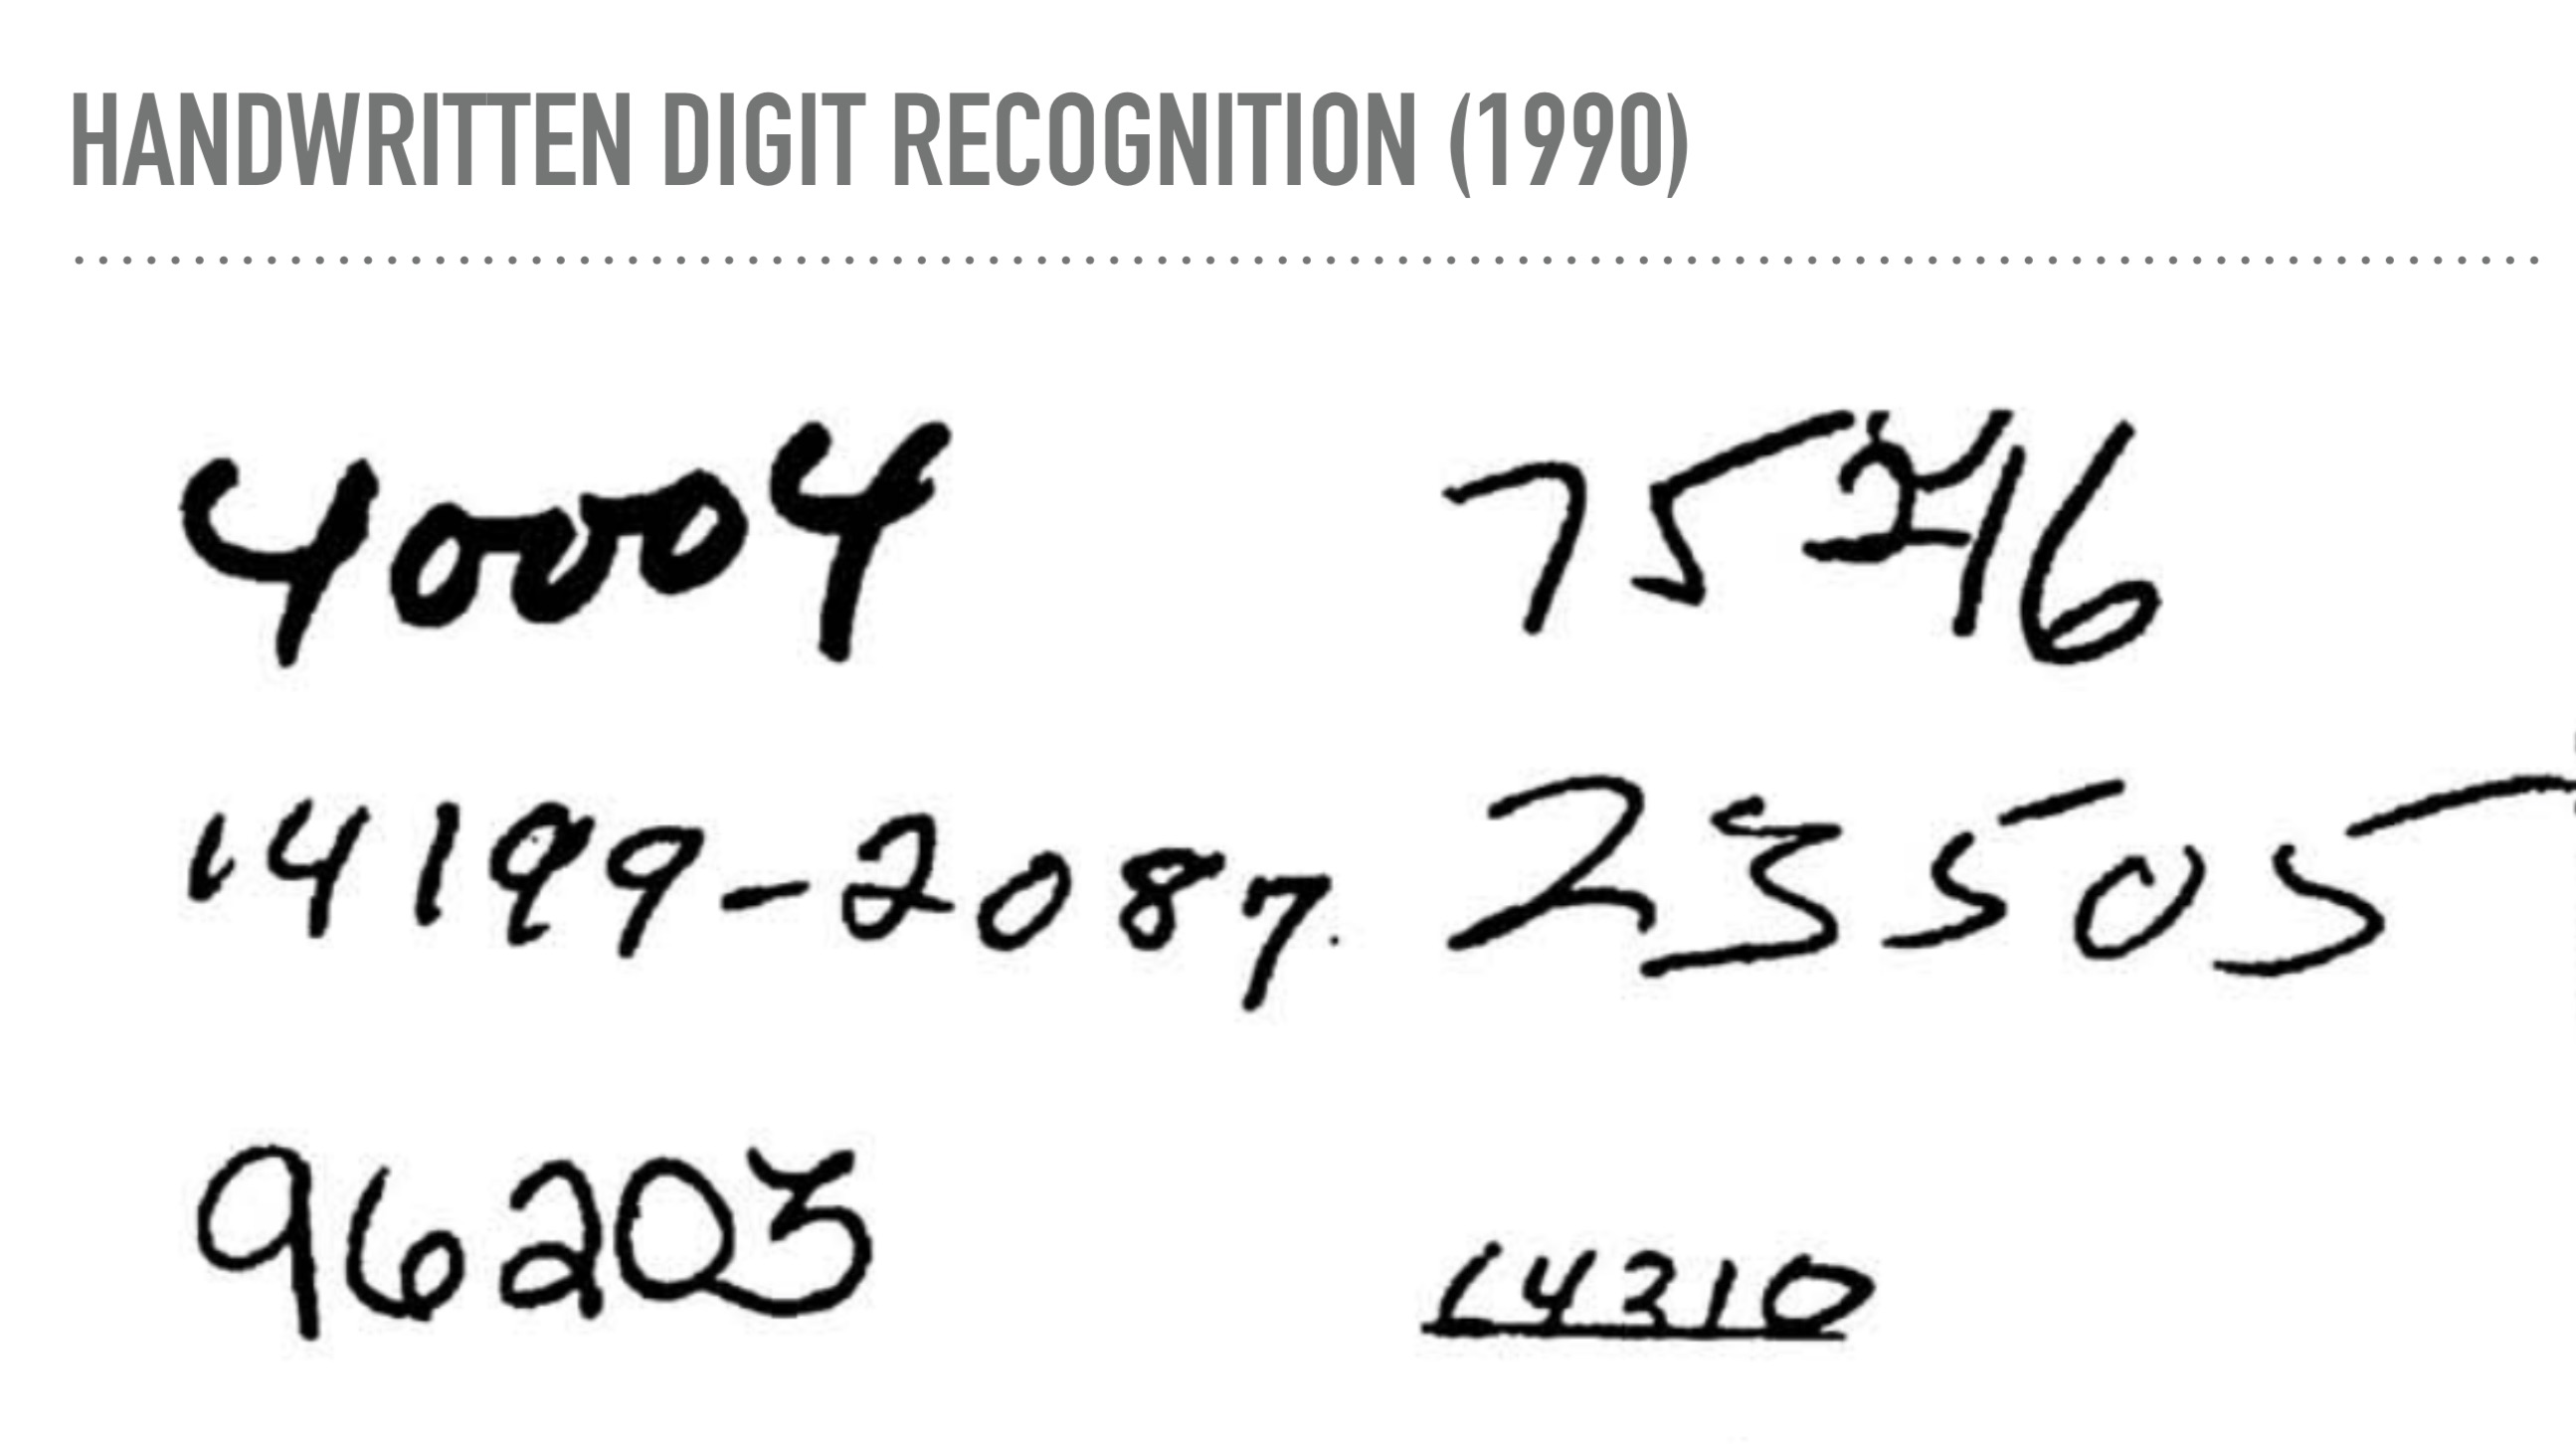 HANDWRITTEN DIGIT RECOGNITION (1990)
40004
75216
14199-2087
23505
96203
14310